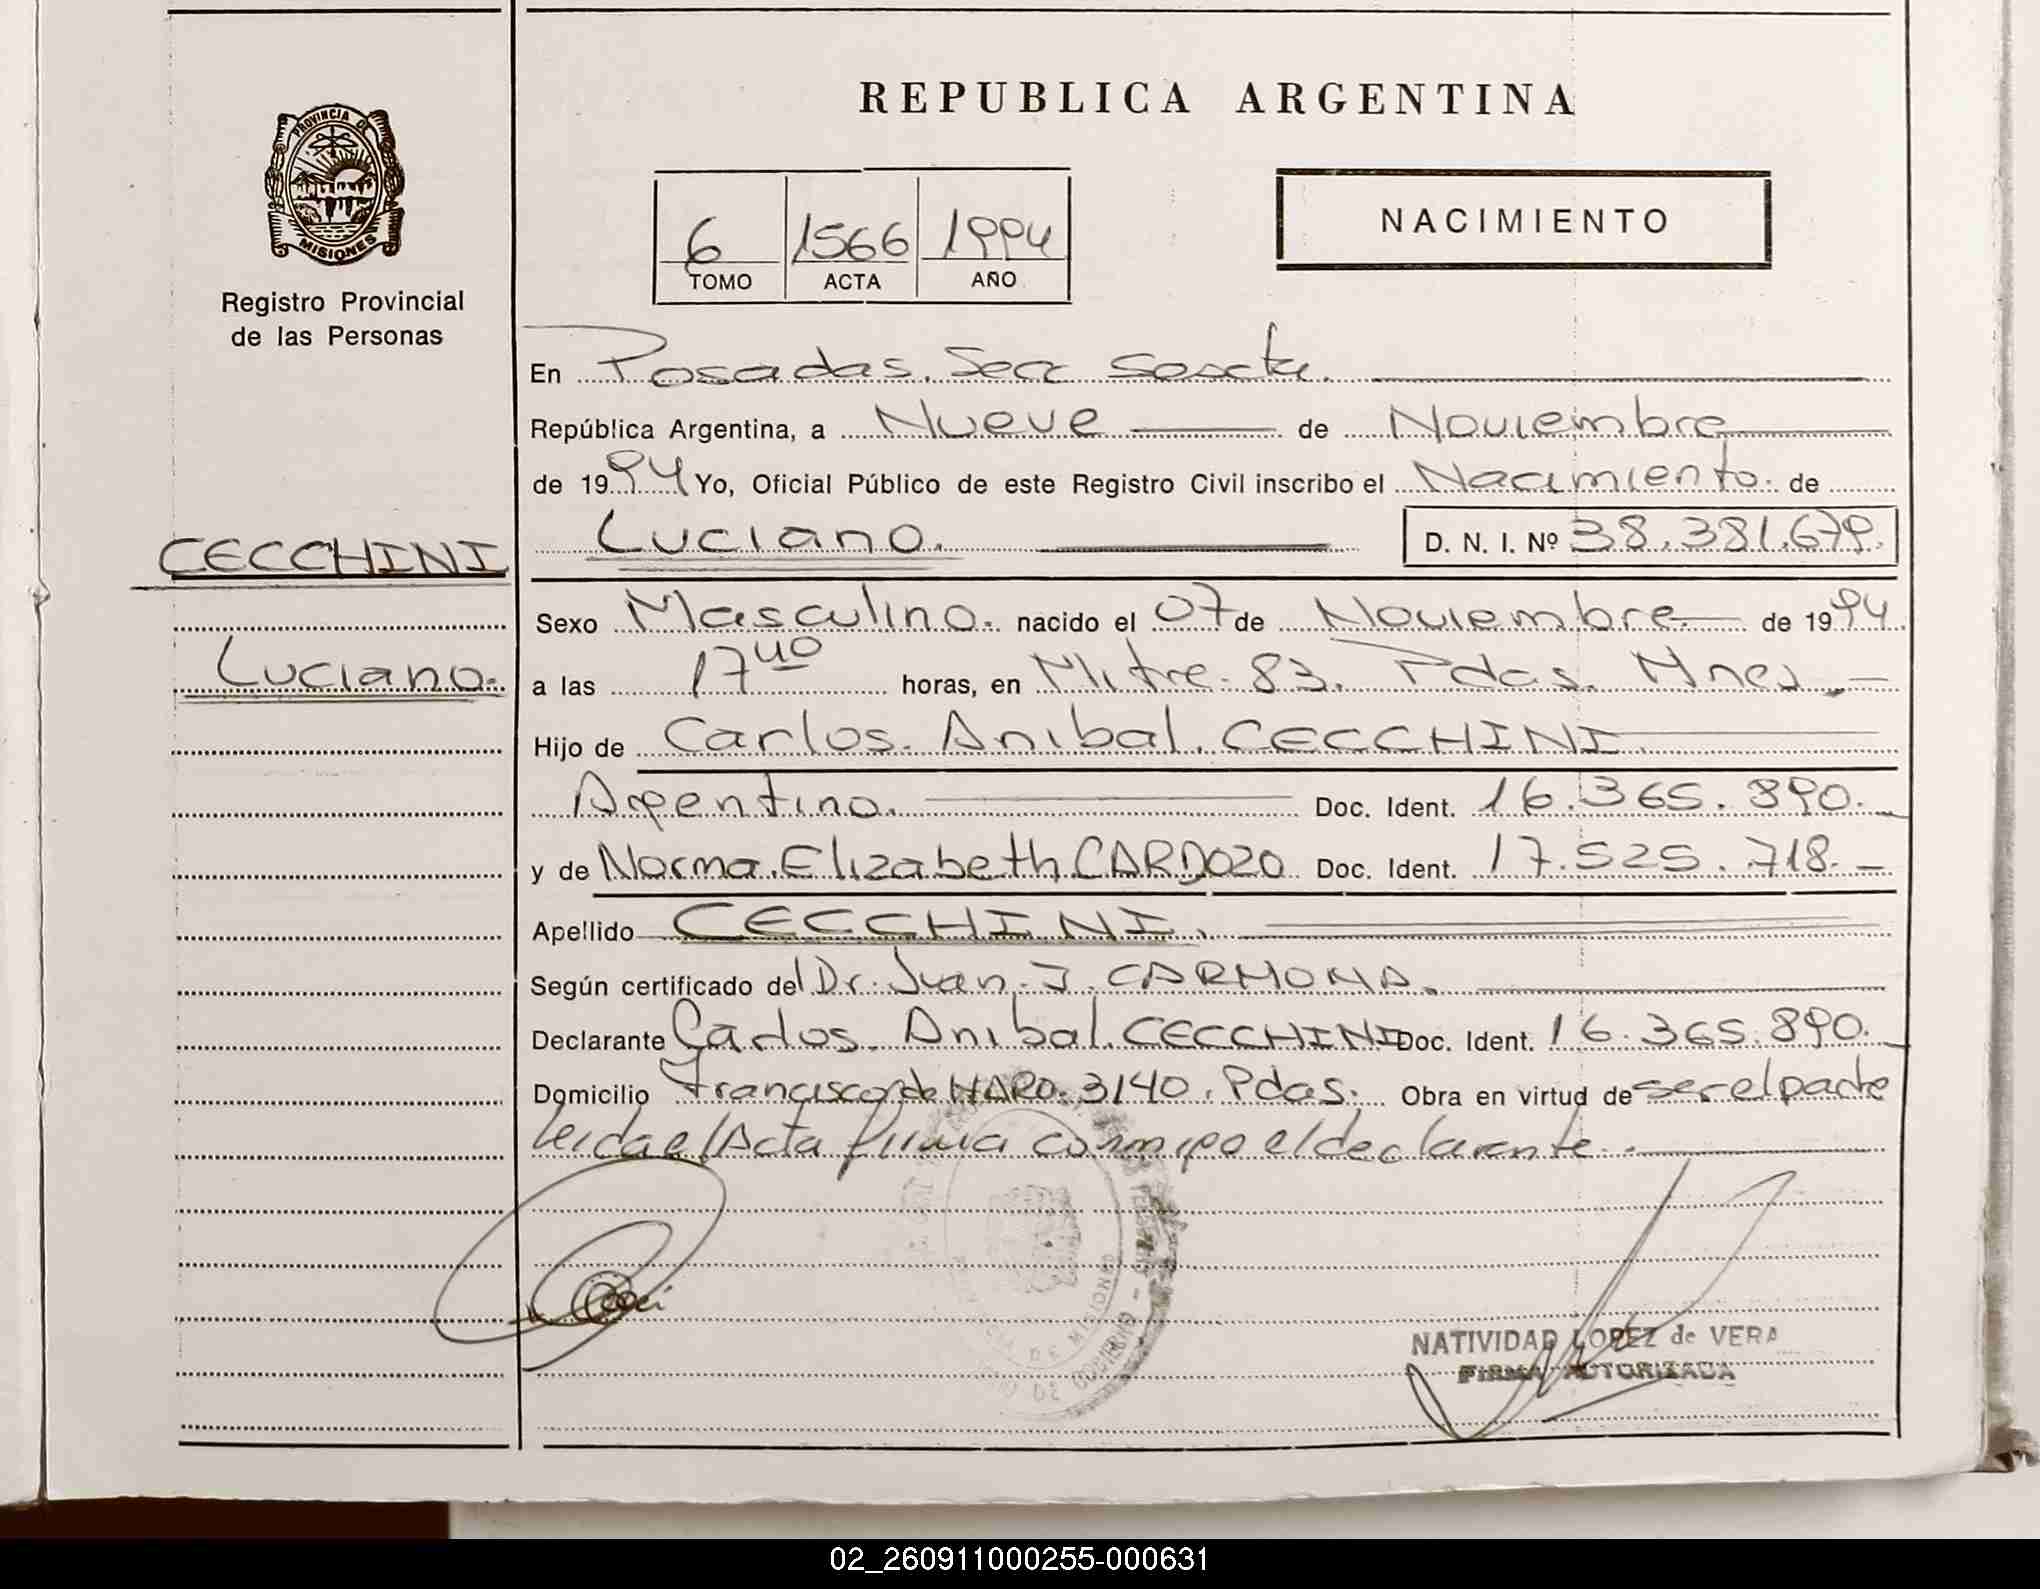 REPUBLICA ARGENTINA
PROVINCIA DE
MISIONES
Registro Provincial
de las Personas
6 1566 1994
TOMO ACTA AÑO
NACIMIENTO
En Posadas. Secc Sexta.
República Argentina, a Nueve de Noviembre
de 1994 Yo, Oficial Público de este Registro Civil inscribo el Nacimiento. de
Luciano. D. N. I. Nº 38.381.679.
CECCHINI
Luciano.
Sexo Masculino. nacido el 07 de Noviembre de 1994
a las 17 40 horas, en Mitre 83. Pdas. Mnes.
Hijo de Carlos. Anibal. CECCHINI.
Argentino. Doc. Ident. 16.365.890.
y de Norma. Elizabeth CARDOZO Doc. Ident. 17.525.718.
Apellido CECCHINI.
Según certificado del Dr. Juan. J. CARMONA.
Declarante Carlos. Anibal. CECCHINI Doc. Ident. 16.365.890.
Domicilio Francisco de HARO. 3140. Pdas. Obra en virtud de ser el padre
leida el Acta firma conmigo el declarante.
NATIVIDAD LOPEZ de VERA
FIRMA AUTORIZADA
02_260911000255-000631